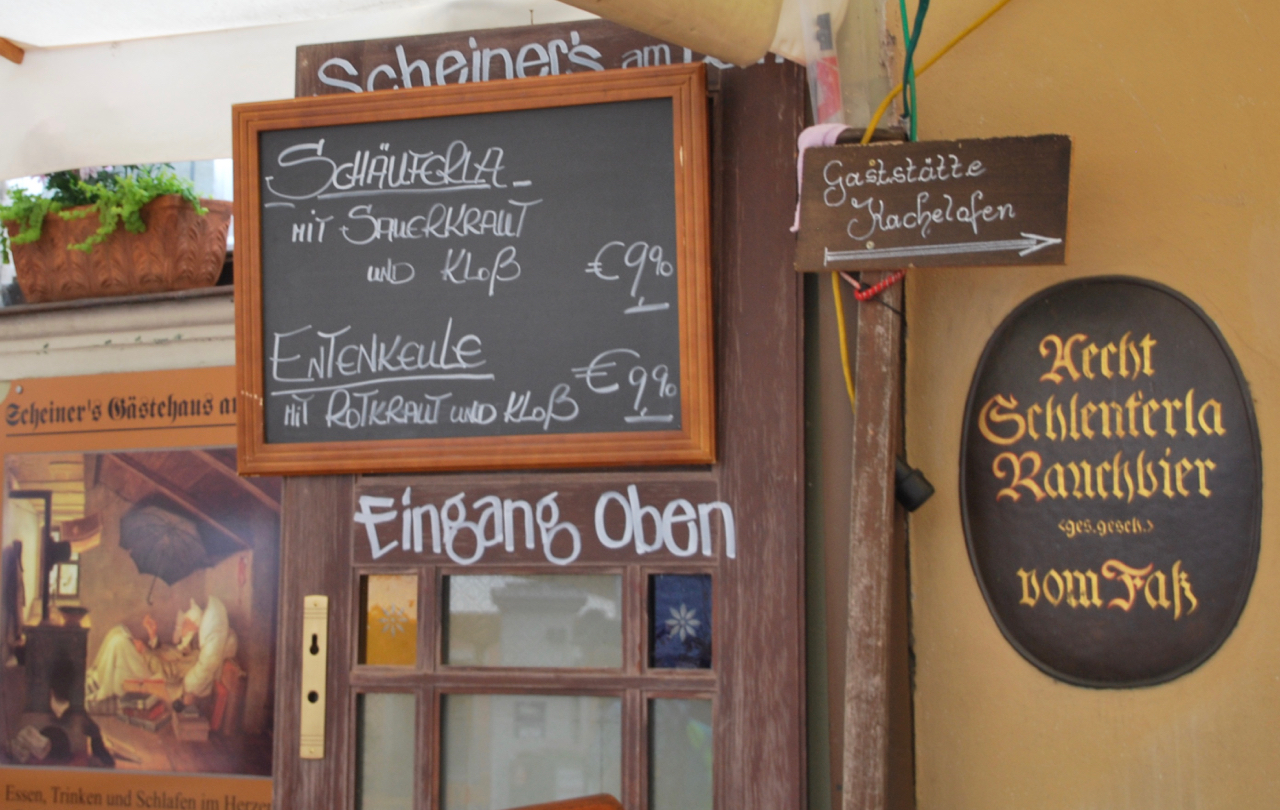 Scheiner's am
SCHÄUFERLA
MIT SAUERKRAUT
UND KLOß €9,90
ENTENKEULE
MIT ROTKRAUT UND KLOß €9,90
Eingang Oben
Gaststätte
Kachelofen
Aecht
Schlenkerla
Rauchbier
<ges.gesch.>
vom Faß
Scheiner's Gästehaus
Essen, Trinken und Schlafen im Herzen